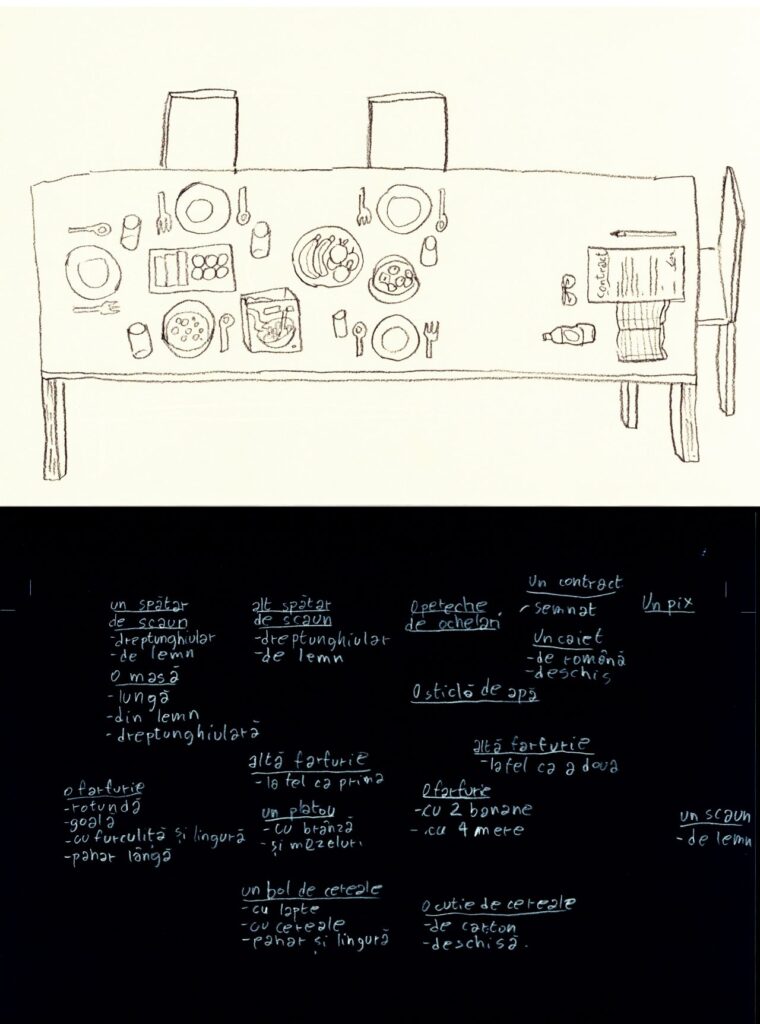 contract
un spătar
de scaun
-dreptunghiular
-de lemn
alt spătar
de scaun
-dreptunghiular
-de lemn
O pereche
de ochelari
Un contract
-semnat
Un pix
Un caiet
-de română
-deschis
O masă
-lungă
-din lemn
-dreptunghiulară
O sticlă de apă
altă farfurie
-la fel ca a două
altă farfurie
-la fel ca prima
o farfurie
-rotundă
-goală
-cu furculiță și lingură
-pahar lângă
un platou
-cu brânză
-și mezeluri
O farfurie
-cu 2 banane
-cu 4 mere
un scaun
-de lemn
un bol de cereale
-cu lapte
-cu cereale
-pahar și lingură
O cutie de cereale
-de carton
-deschisă.